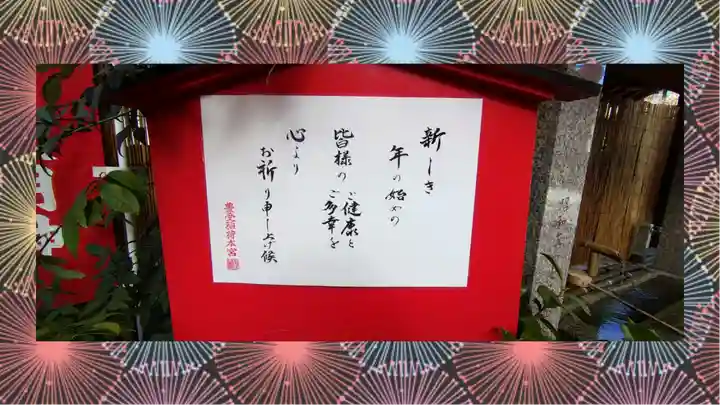 新しき
年の始めの
皆様のご健康と
ご多幸を
心より
お祈り申し上げ候
豊受稲荷本宮